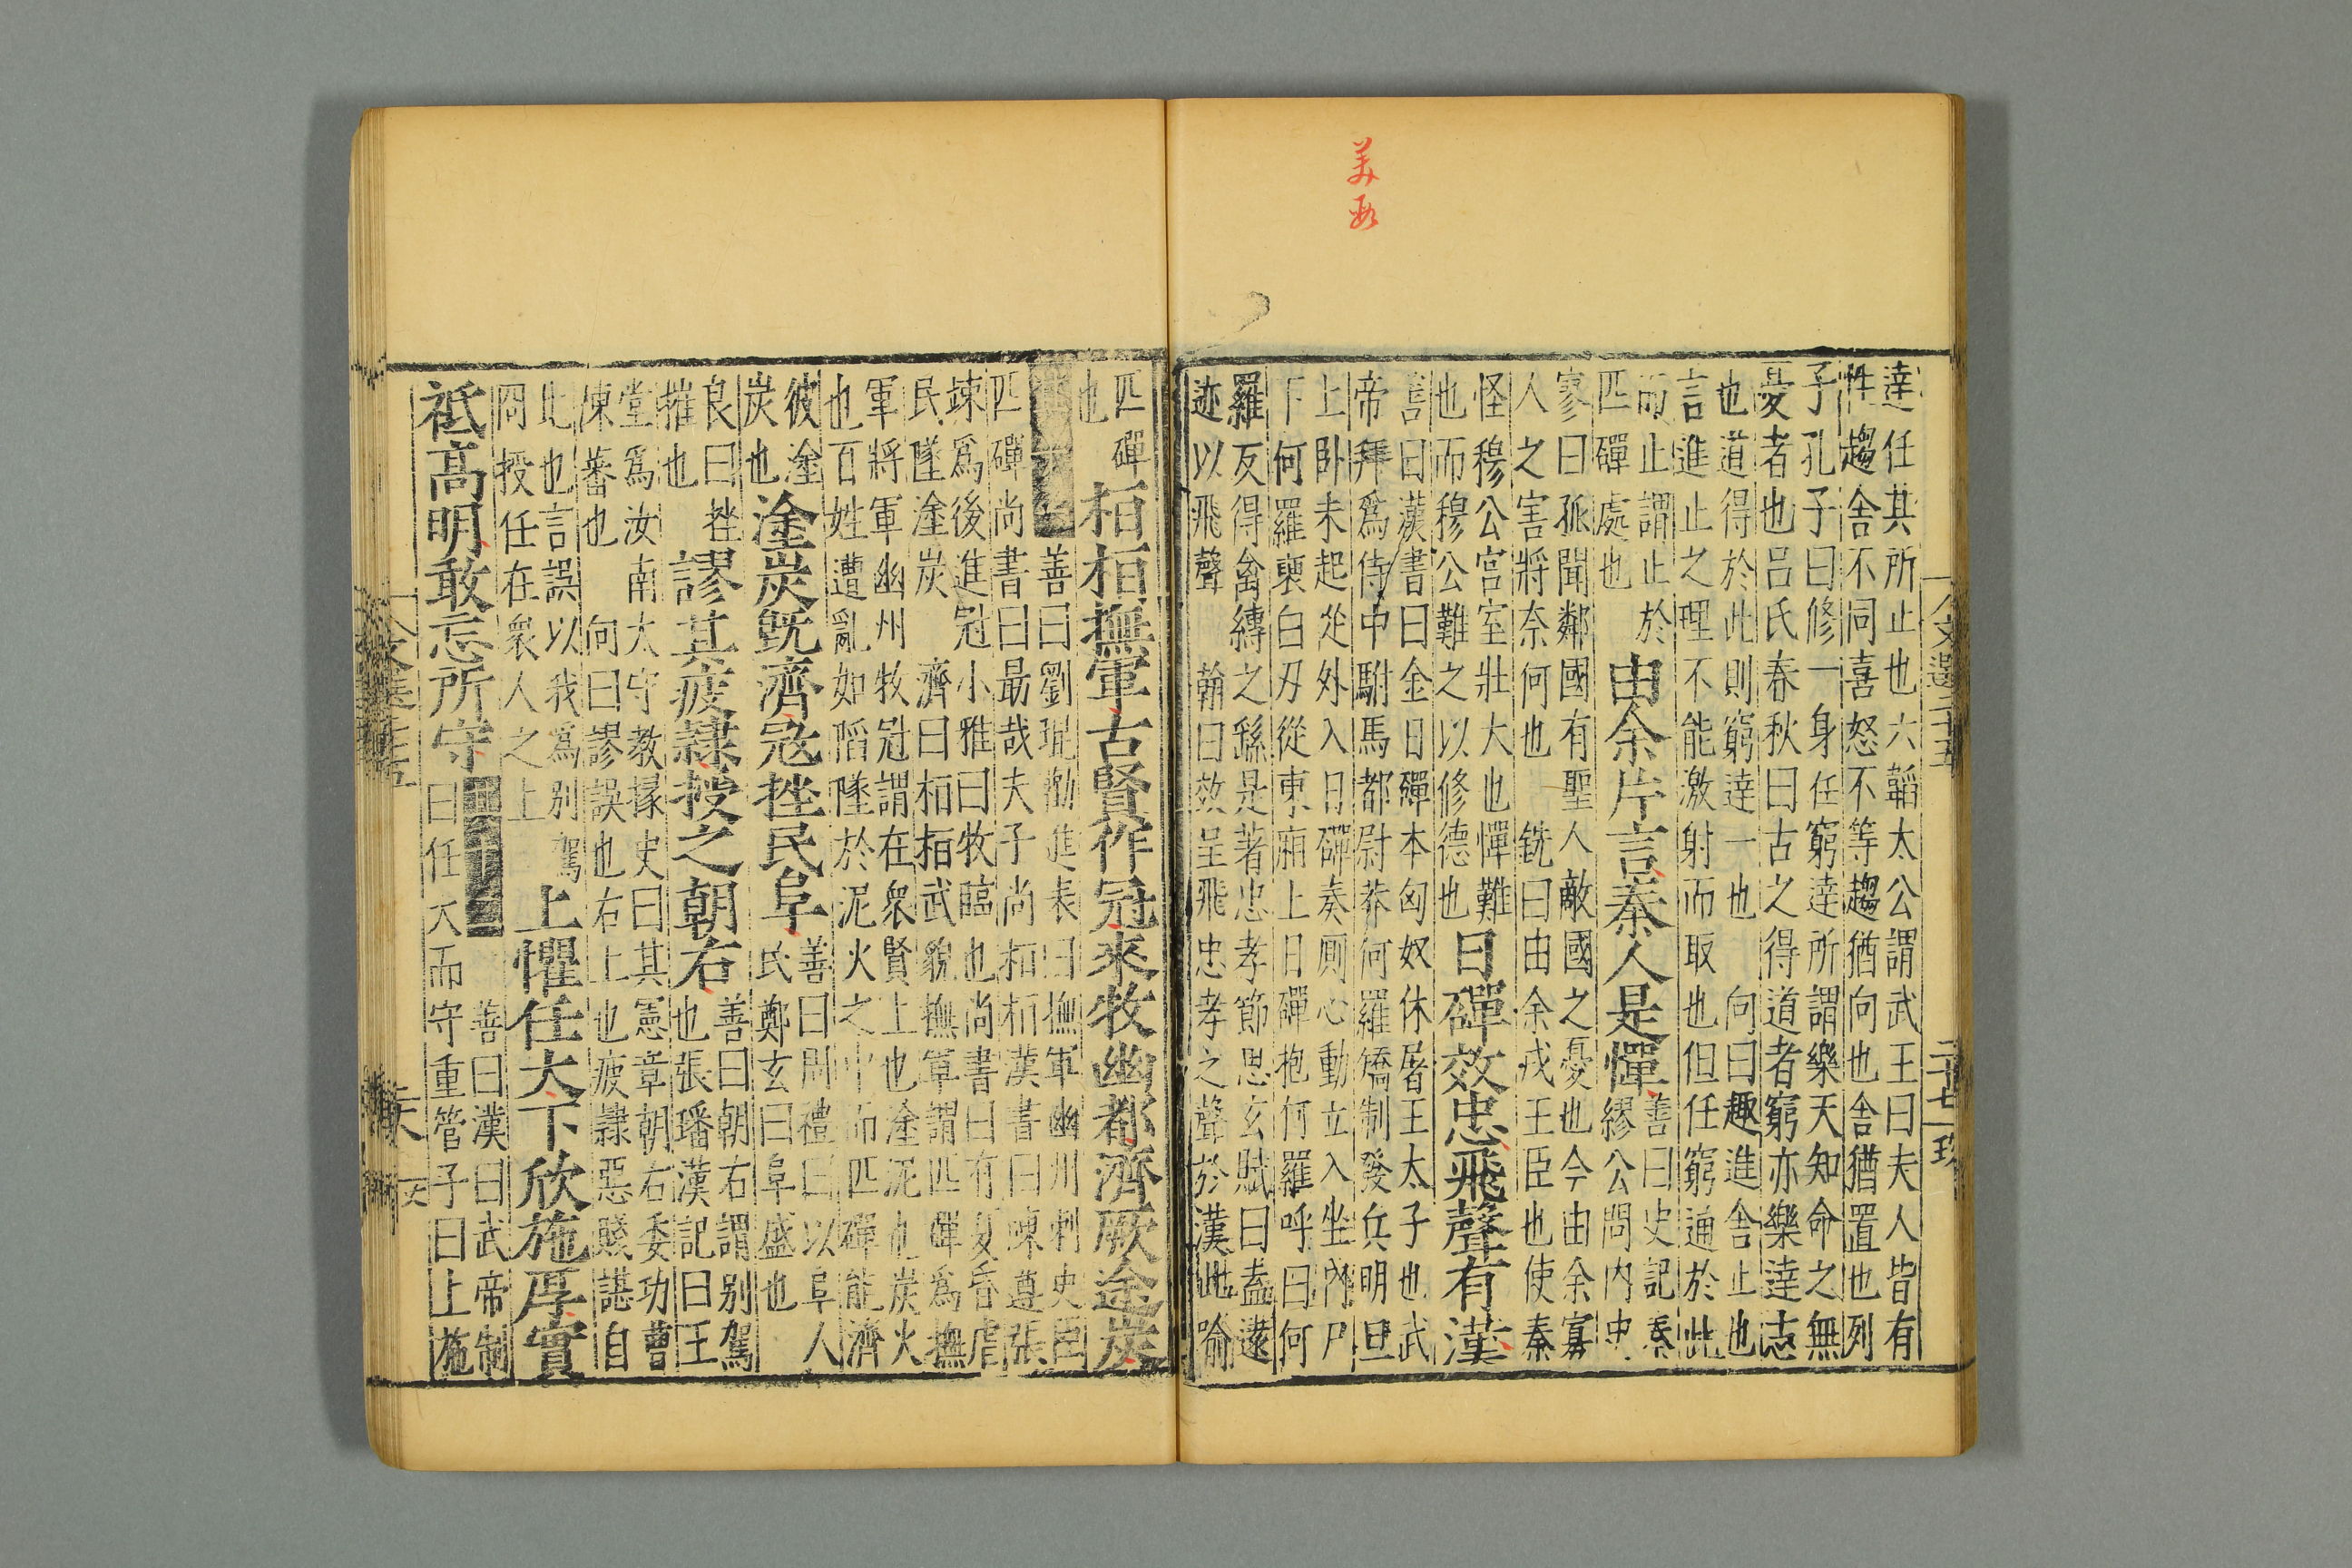 美
文選二十五
二十七
達任其所止也六韜太公謂武王曰夫人皆有
性趨舍不同喜怒不等趨猶向也舍猶置也列
子孔子曰修一身任窮達所謂樂天知命之無
憂者也呂氏春秋曰古之得道者窮亦樂達亦
也道得於此則窮達一也 向曰趣進舍止也
言進止之理不能激射而取也但任窮通於此
而止謂止於
匹磾處也
由余片言秦人是憚
善曰史記秦
繆公問內史
寥曰孤聞鄰國有聖人敵國之憂也今由余寡
人之害將奈何也 銑曰由余戎王臣也使秦
怪穆公宮室壯大也憚難
也而穆公難之以修德也
日磾效忠飛聲有漢
善曰漢書曰金日磾本匈奴休屠王太子也武
帝拜為侍中駙馬都尉莽何羅矯制發兵明旦
上卧未起從外入日磾奏厠心動立入坐內戶
下何羅褏白刃從東廂上日磾抱何羅呼曰何
羅反得禽縛之繇是著忠孝節思玄賦曰盍遠
迹以飛聲 翰曰效呈飛忠孝之聲於漢此喻
匹磾
也
桓桓撫軍古賢作冠來牧幽都濟厥塗炭
善曰劉琨勸進表曰撫軍幽州刺史臣
匹磾尚書曰勗哉夫子尚桓桓漢書曰陳遵張
竦為後進冠小雅曰牧臨也尚書曰有夏昏虐
民墜塗炭 濟曰桓桓武貌撫軍謂匹磾為撫
軍將軍幽州牧冠謂在衆賢上也塗泥也炭火
也百姓遭亂如陷墜於泥火之中而匹磾能濟
彼塗
炭也
塗炭既濟寇挫民阜
善曰周禮曰以阜人
民鄭玄曰阜盛也
良曰挫
摧也
謬其疲隸授之朝右
善曰朝右謂別駕
也張璠漢記曰王
堂為汝南太守教掾史曰其憲章朝右委功曹
陳蕃也 向曰謬誤也右上也疲隸惡賤諶自
此也言誤以我為別駕
同授任在衆人之上
上懼任大下欣施厚實
祗高明敢忘所守
善曰漢曰武帝制
曰任大而守重管子曰上施